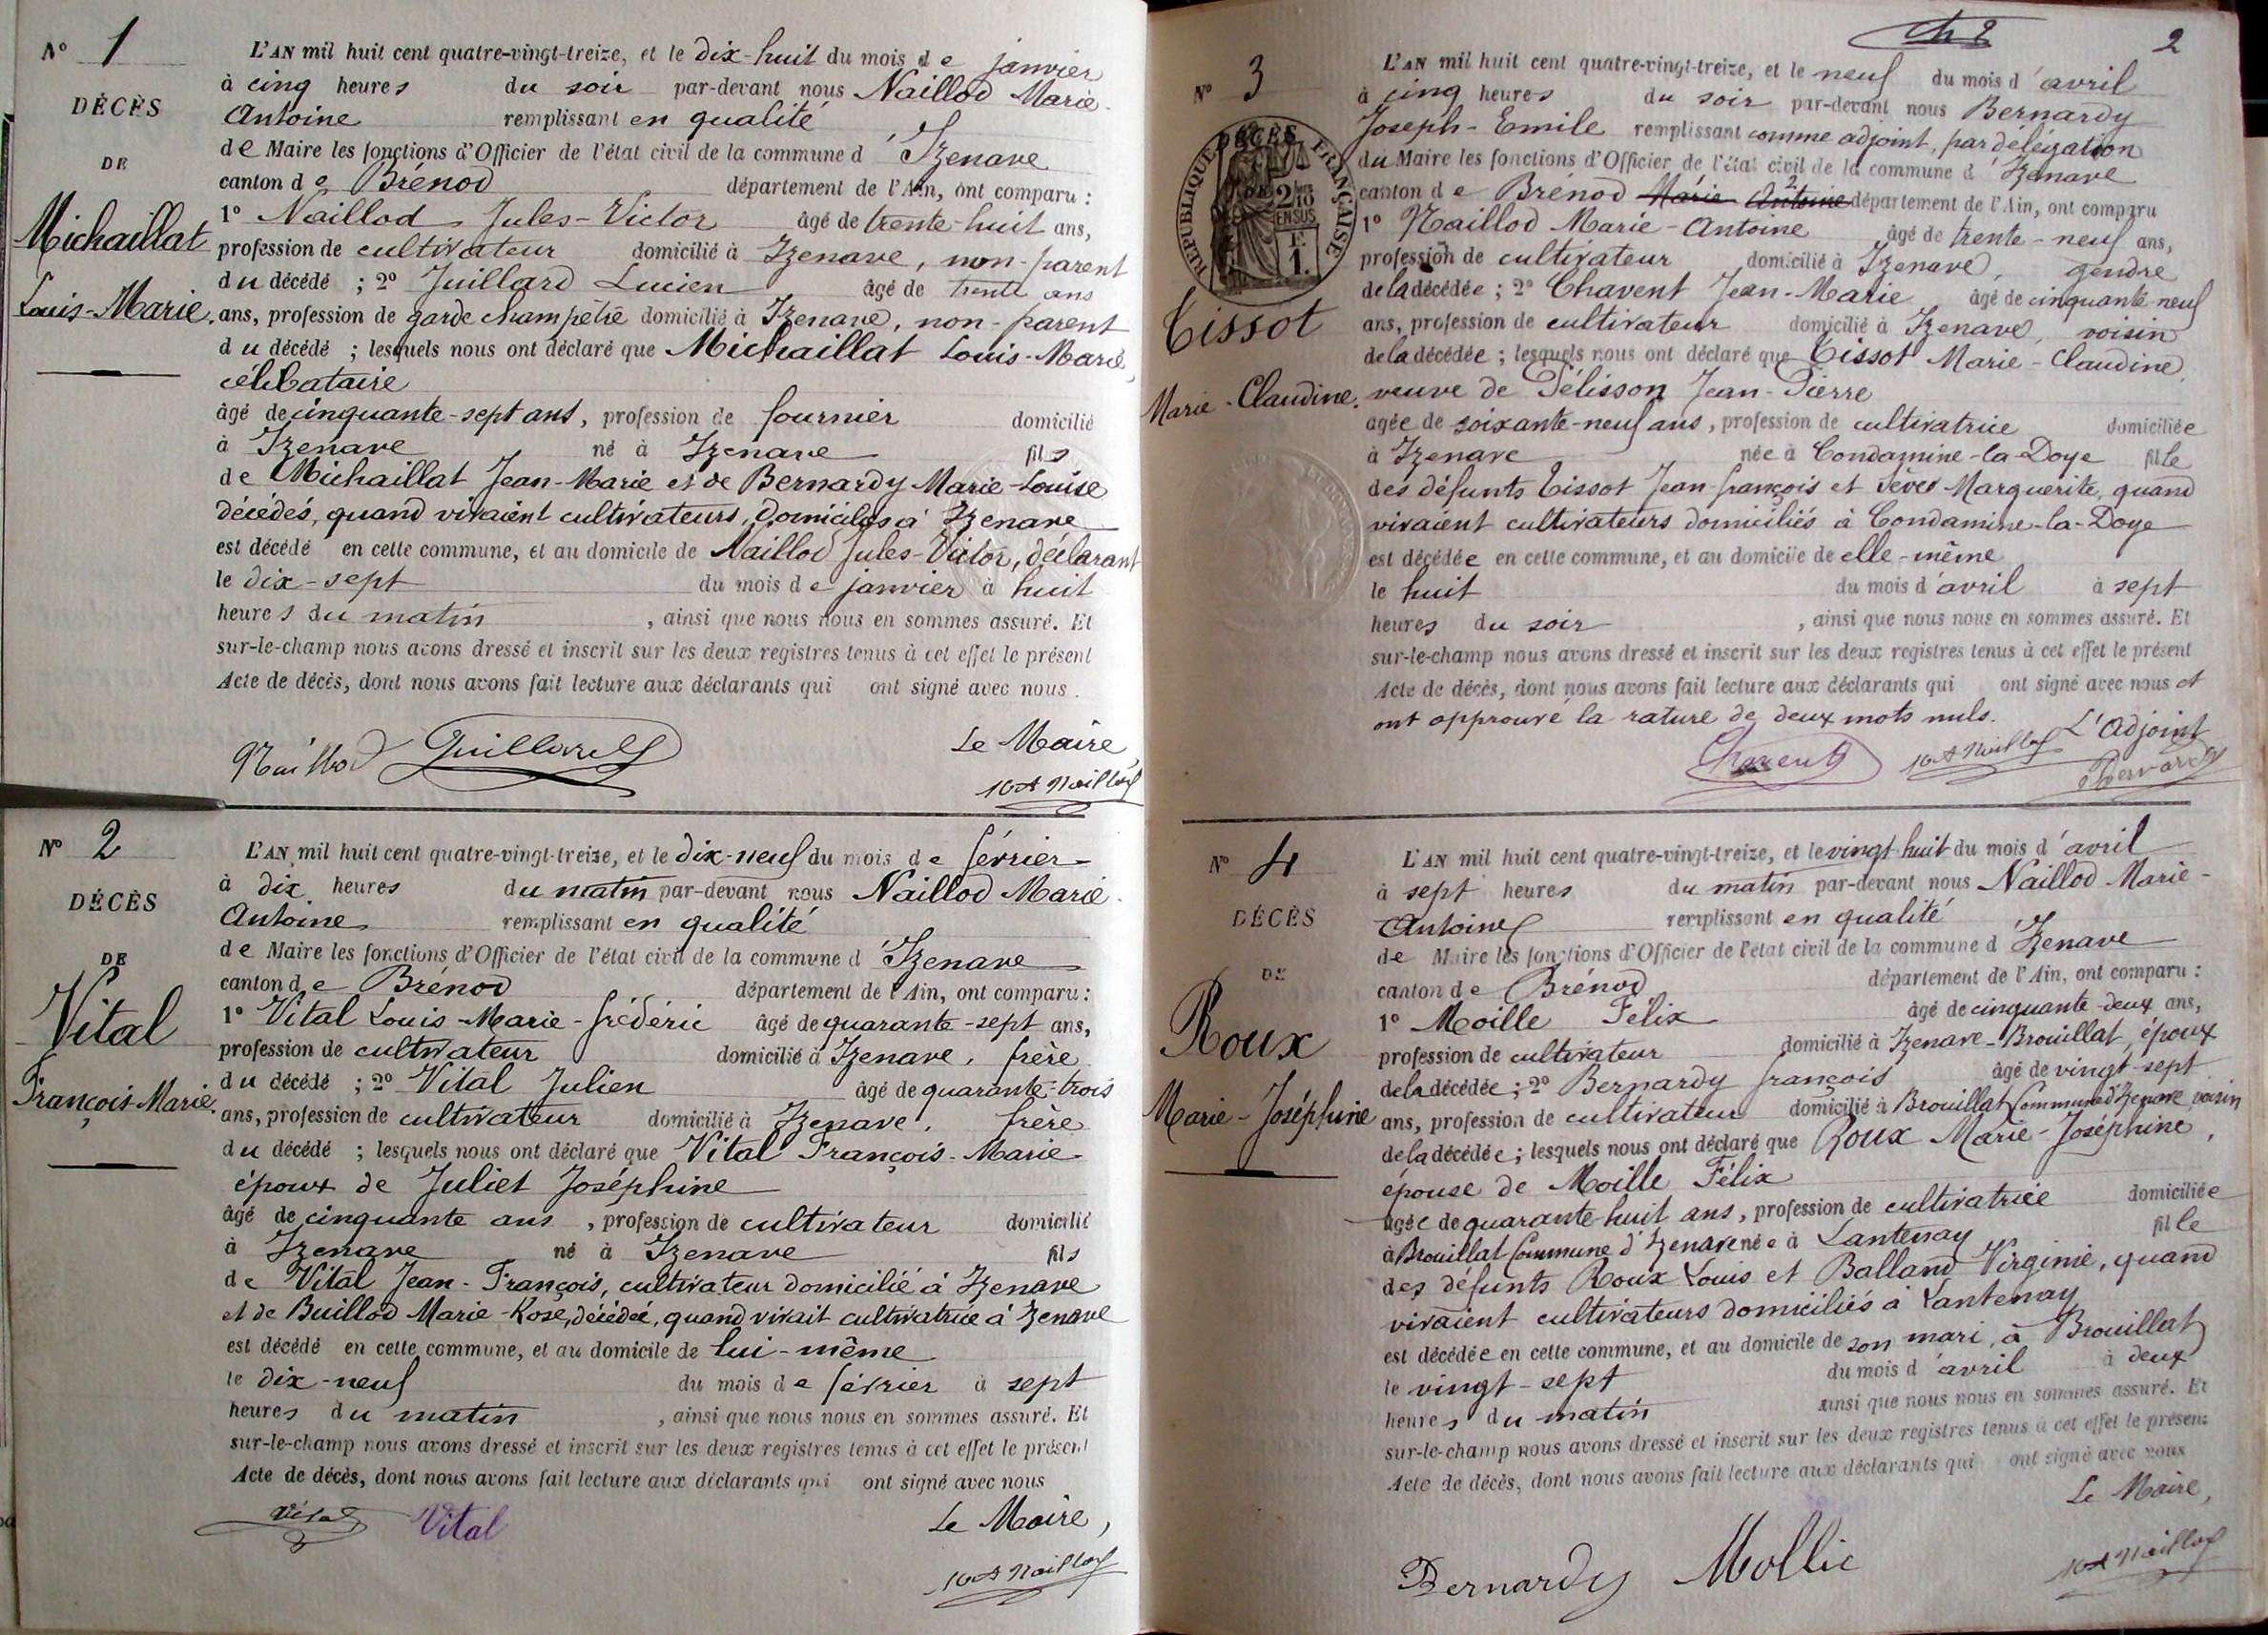 N° 1
DÉCÈS
DE
Michaillat
Louis-Marie.
L'AN mil huit cent quatre-vingt-treize, et le dix-huit du mois de janvier
à cinq heures du soir par-devant nous Naillod Marie-
Antoine remplissant en qualité
de Maire les fonctions d'Officier de l'état civil de la commune d'Izenave
canton de Brénod département de l'Ain, ont comparu :
1° Naillod Jules-Victor âgé de trente-huit ans,
profession de cultivateur domicilié à Izenave, non-parent
du décédé ; 2° Juillard Lucien âgé de trente ans
ans, profession de garde champêtre domicilié à Izenave, non-parent
du décédé ; lesquels nous ont déclaré que Michaillat Louis-Marie,
célibataire
âgé de cinquante-sept ans, profession de fournier domicilié
à Izenave né à Izenave fils
de Michaillat Jean-Marie et de Bernardy Marie-Louise
décédés, quand vivaient cultivateurs, domiciliés à Izenave
est décédé en cette commune, et au domicile de Naillod Jules-Victor, déclarant
le dix-sept du mois de janvier à huit
heures du matin , ainsi que nous nous en sommes assuré. Et
sur-le-champ nous avons dressé et inscrit sur les deux registres tenus à cet effet le présent
Acte de décès, dont nous avons fait lecture aux déclarants qui ont signé avec nous.
Le Maire
Naillod Juillard
MA Naillod
N° 2
DÉCÈS
DE
Vital
François-Marie.
L'AN mil huit cent quatre-vingt-treize, et le dix-neuf du mois de février
à dix heures du matin par-devant nous Naillod Marie-
Antoine remplissant en qualité
de Maire les fonctions d'Officier de l'état civil de la commune d'Izenave
canton de Brénod département de l'Ain, ont comparu :
1° Vital Louis-Marie-frédéric âgé de quarante-sept ans,
profession de cultivateur domicilié à Izenave, frère
du décédé ; 2° Vital Julien âgé de quarante-trois
ans, profession de cultivateur domicilié à Izenave, frère
du décédé ; lesquels nous ont déclaré que Vital François-Marie
époux de Juliet Joséphine
âgé de cinquante ans , profession de cultivateur domicilié
à Izenave né à Izenave fils
de Vital Jean-François, cultivateur domicilié à Izenave
et de Buillod Marie-Rose, décédée, quand vivait cultivatrice à Izenave
est décédé en cette commune, et au domicile de lui-même
le dix-neuf du mois de février à sept
heures du matin , ainsi que nous nous en sommes assuré. Et
sur-le-champ nous avons dressé et inscrit sur les deux registres tenus à cet effet le présent
Acte de décès, dont nous avons fait lecture aux déclarants qui ont signé avec nous
Vital Vital
Le Maire,
MA Naillod
2
N° 3
DÉCÈS
RÉPUBLIQUE FRANÇAISE
Tissot
Marie-Claudine.
L'AN mil huit cent quatre-vingt-treize, et le neuf du mois d'avril
à cinq heures du soir par-devant nous Bernardy
Joseph-Emile remplissant comme adjoint, par délégation
du Maire les fonctions d'Officier de l'état civil de la commune d'Izenave
canton de Brénod Marie Antoine département de l'Ain, ont comparu
1° Naillod Marie-Antoine âgé de trente-neuf ans,
profession de cultivateur domicilié à Izenave, gendre
de la décédée ; 2° Chavent Jean-Marie âgé de cinquante-neuf
ans, profession de cultivateur domicilié à Izenave, voisin
de la décédée ; lesquels nous ont déclaré que Tissot Marie-Claudine,
veuve de Pélisson Jean-Pierre
agée de soixante-neuf ans, profession de cultivatrice domiciliée
à Izenave née à Condamine-la-Doye fille
des défunts Tissot Jean-françois et Sève Marguerite, quand
vivaient cultivateurs domiciliés à Condamine-la-Doye
est décédée en cette commune, et au domicile de elle-même
le huit du mois d'avril à sept
heures du soir , ainsi que nous nous en sommes assuré. Et
sur-le-champ nous avons dressé et inscrit sur les deux registres tenus à cet effet le présent
Acte de décès, dont nous avons fait lecture aux déclarants qui ont signé avec nous et
ont approuvé la rature de deux mots nuls.
L'Adjoint
Chavent MA Naillod Bernardy
N° 4
DÉCÈS
DE
Roux
Marie-Joséphine
L'AN mil huit cent quatre-vingt-treize, et le vingt-huit du mois d'avril
à sept heures du matin par-devant nous Naillod Marie-
Antoine remplissant en qualité
de Maire les fonctions d'Officier de l'état civil de la commune d'Izenave
canton de Brénod département de l'Ain, ont comparu :
1° Moille Félix âgé de cinquante-deux ans,
profession de cultivateur domicilié à Izenave-Brouillat, époux
de la décédée ; 2° Bernardy françois âgé de vingt-sept
ans, profession de cultivateur domicilié à Brouillat Commune d'Izenave, voisin
de la décédée ; lesquels nous ont déclaré que Roux Marie-Joséphine,
épouse de Moille Félix
agée de quarante-huit ans, profession de cultivatrice domiciliée
à Brouillat Commune d'Izenave née à Lantenay fille
des défunts Roux Louis et Balland Virginie, quand
vivaient cultivateurs domiciliés à Lantenay
est décédée en cette commune, et au domicile de son mari, à Brouillat
le vingt-sept du mois d'avril à deux
heures du matin ainsi que nous nous en sommes assuré. Et
sur-le-champ nous avons dressé et inscrit sur les deux registres tenus à cet effet le présent
Acte de décès, dont nous avons fait lecture aux déclarants qui ont signé avec nous
Le Maire,
Bernardy Mollie
MA Naillod